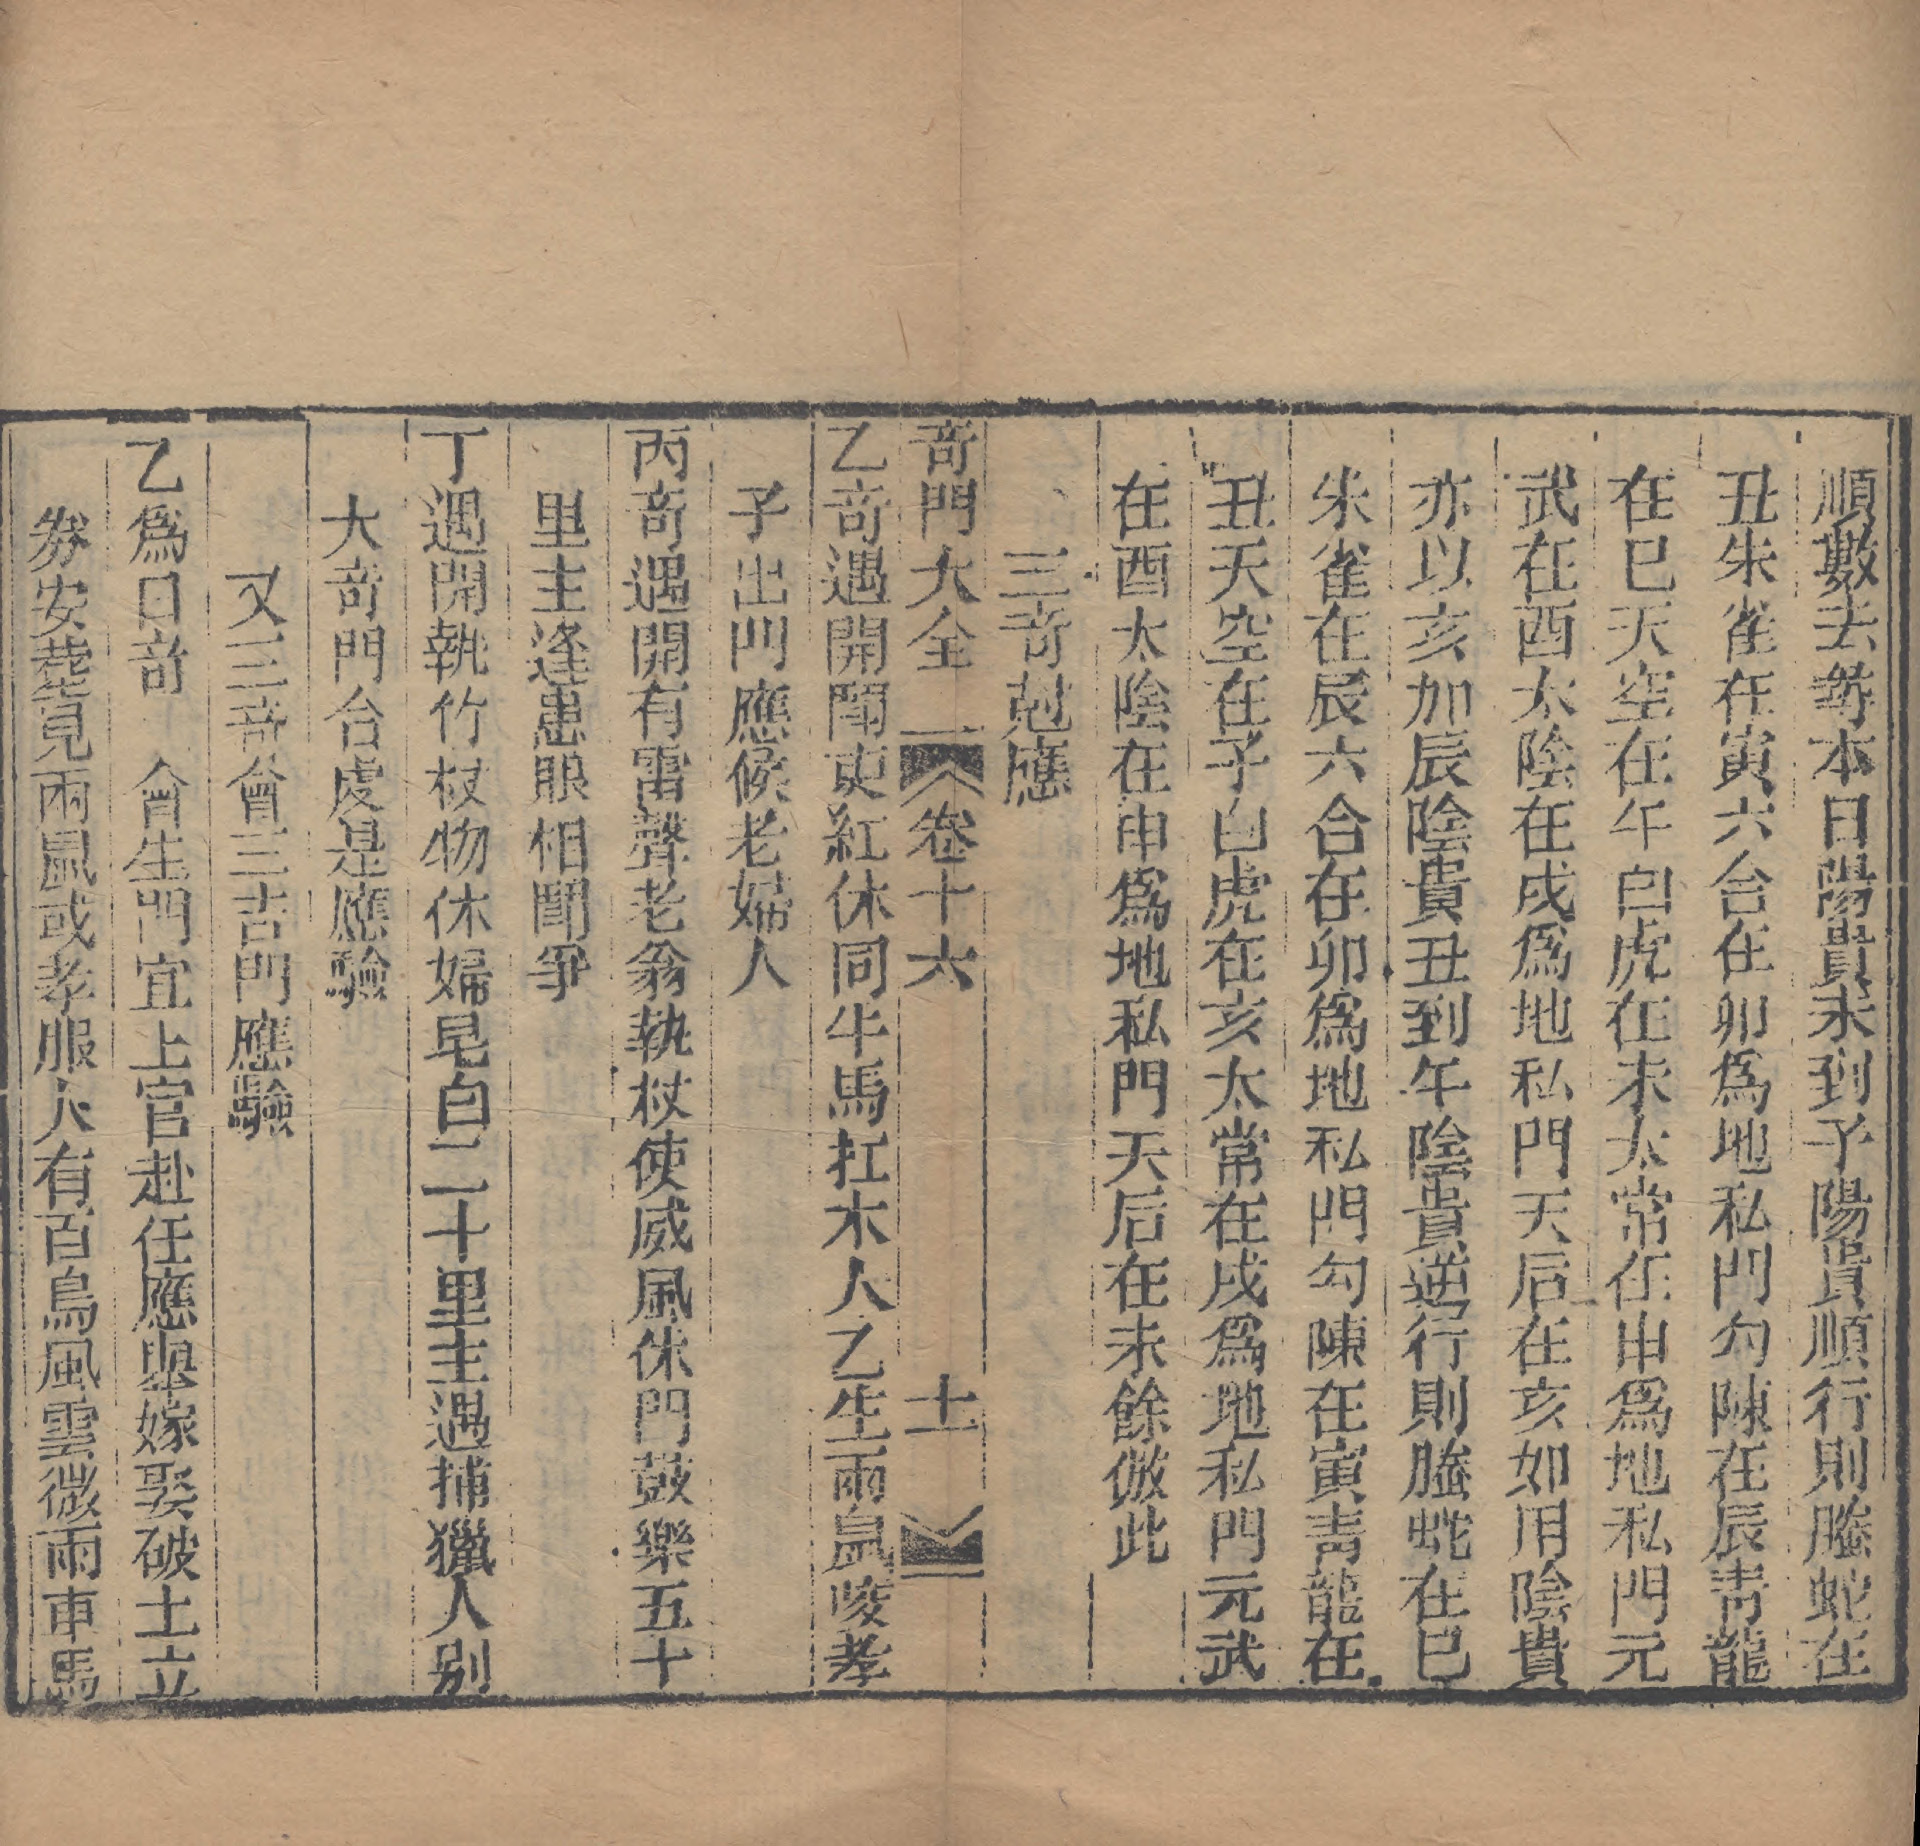 順數去尋本日陽貴未到子陽貴順行則螣蛇在
丑朱雀在寅六合在卯爲地私門勾陳在辰靑龍
在巳天空在午白虎在未太常在申爲地私門元
武在酉太陰在戌爲地私門天后在亥如用陰貴
亦以亥加辰陰貴丑到午陰貴逆行則螣蛇在巳
朱雀在辰六合在卯爲地私門勾陳在寅靑龍在
丑天空在子白虎在亥太常在戌爲地私門元武
在酉太陰在申爲地私門天后在未餘倣此
三竒尅應
竒門大全 卷十六 十一
乙竒遇開聞吏紅休同牛馬扛木人乙生雨鼠崚孝
子出門應候老婦人
丙竒遇開有雷聲老翁執杖使威風休門鼓樂五十
里主逢患眼相鬪爭
丁遇開執竹杖物休婦皂白二十里主遇捕獵人别
大竒門台虔是應驗
又三竒會三吉門應驗
乙爲日竒 會生門宜上官赴任應舉嫁娶破土立
券安葬竟見兩鼠或孝服人有百鳥風雲微雨車馬